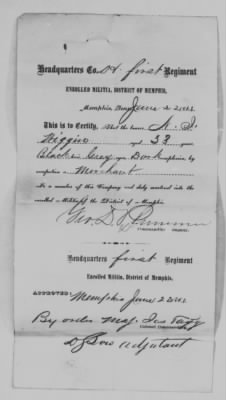 Headquarters Co. first Regiment
ENROLLED MILITIA, DISTRICT OF MEMPHIS,
Memphis, June 2 186
This is to Certify, That the bearer
Higgins aged 33 years
Black hair Grey eyes Dark complexion, by
occupation a Merchant
is a member of this Company and duly enrolled into the
enrolled Militia of the District of Memphis.
Geo. D.
Commanding Company.
Headquarters first Regiment
Enrolled Militia, District of Memphis.
APPROVED: Memphis June 2 186
By order Maj.
Colonel Commanding
Adjutant